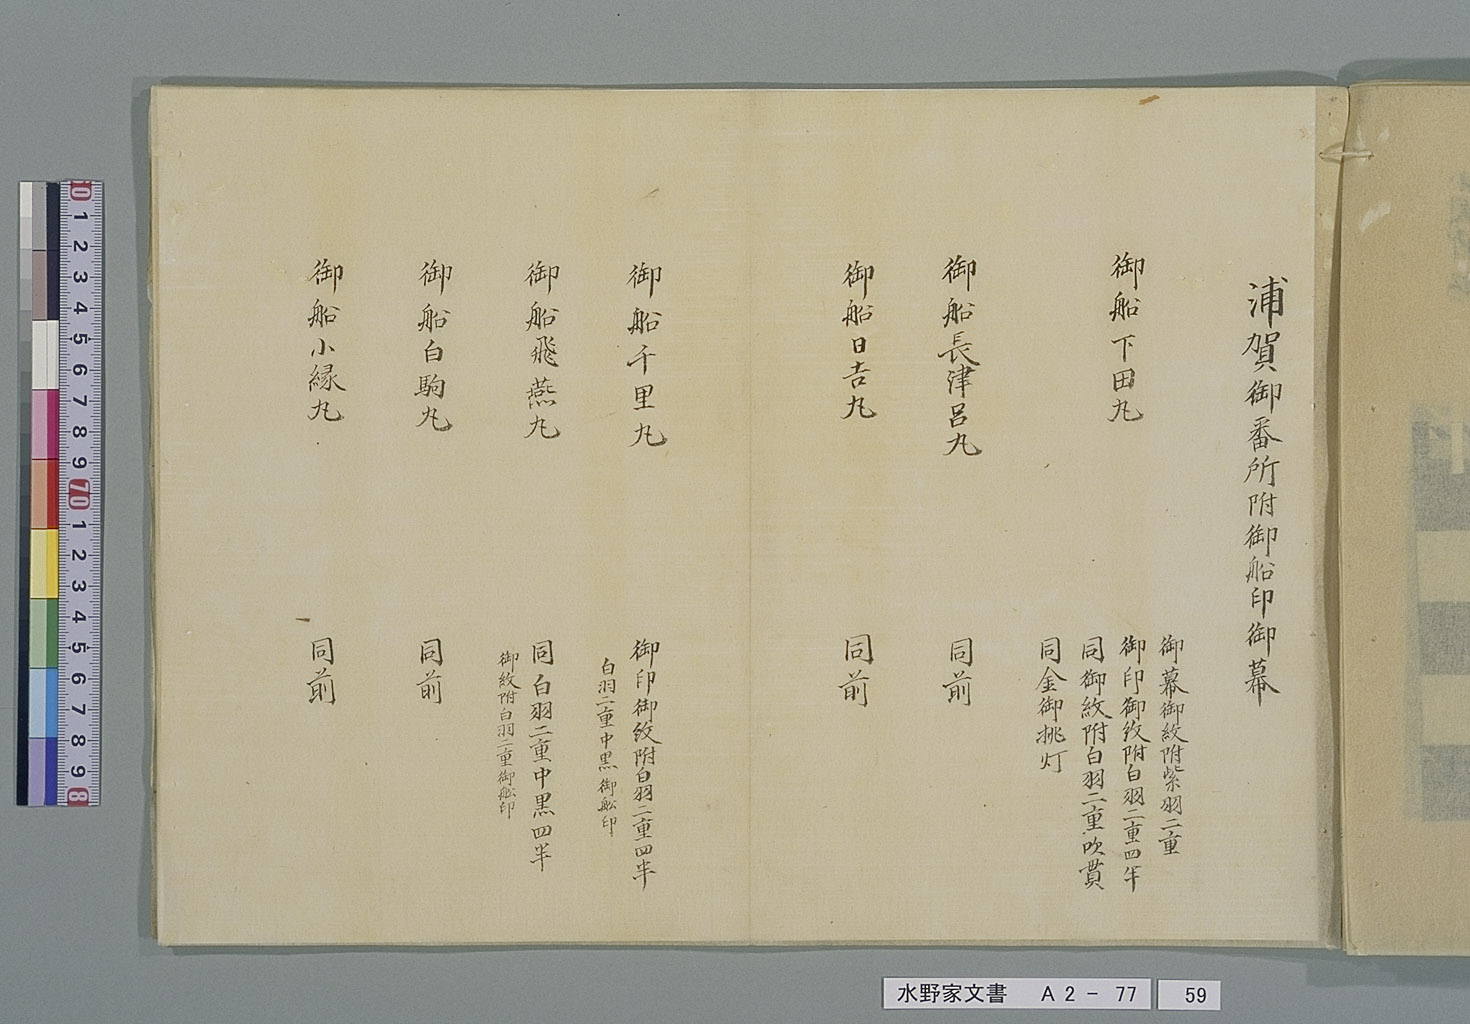 浦賀御番所附御船印御幕
御船下田丸
御幕御紋附紫羽二重
御印御紋附白羽二重四半
同御紋附白羽二重吹貫
同金御挑灯
御船長津呂丸
同前
御船日吉丸
同前
御船千里丸
御印御紋附白羽二重四半
白羽二重中黒御船印
御船飛燕丸
同白羽二重中黒四半
御紋附白羽二重御船印
御船白駒丸
同前
御船小縁丸
同前
水野家文書 A2-77 59